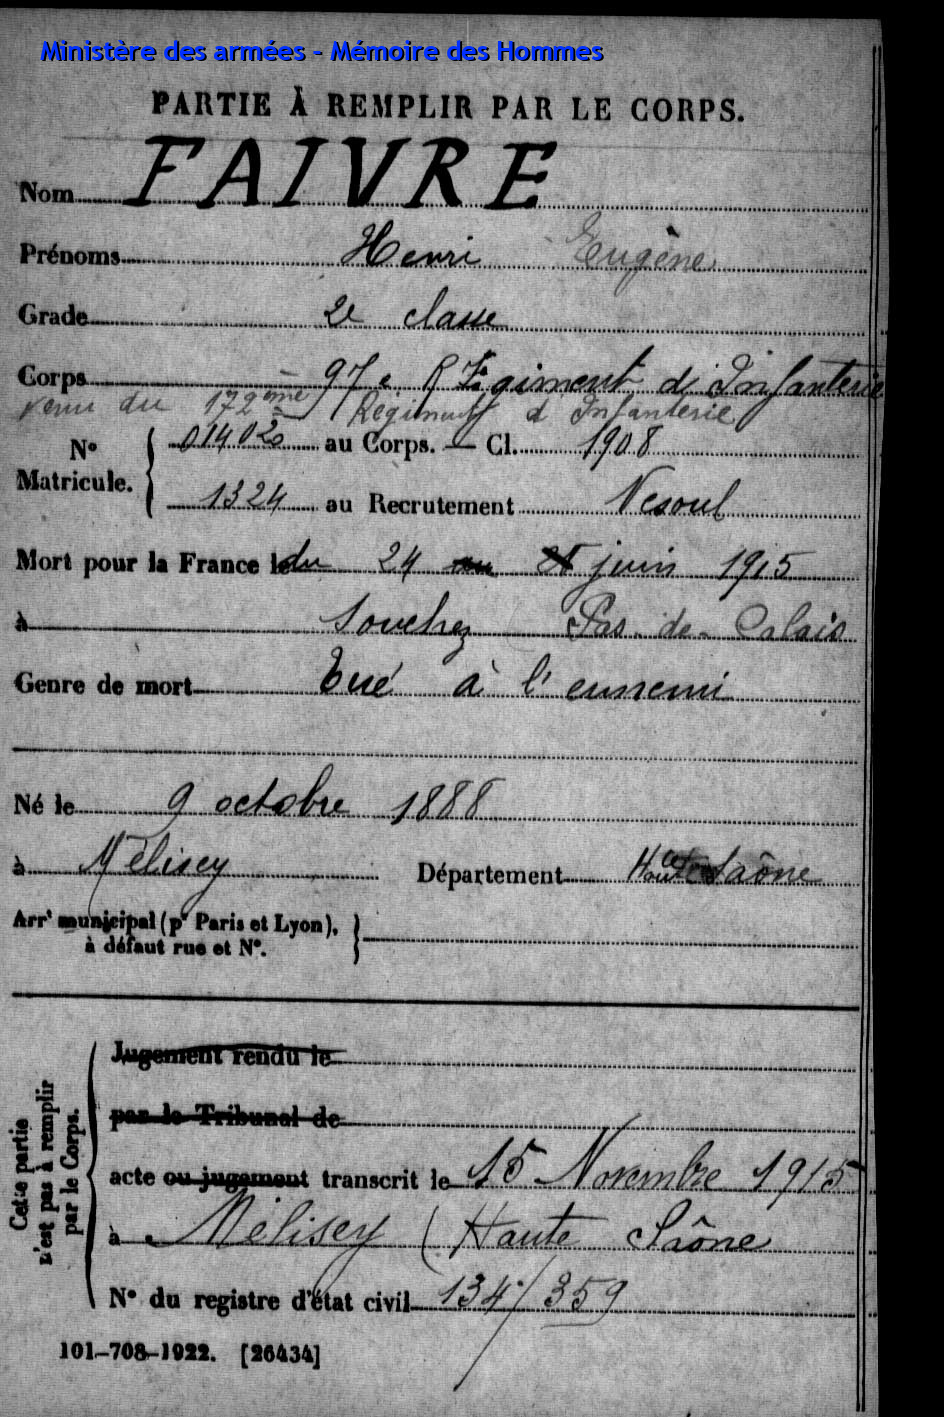 Ministère des armées - Mémoire des Hommes
PARTIE À REMPLIR PAR LE CORPS.
Nom FAIVRE
Prénoms Henri Eugène
Grade 2e classe
Corps 97e Régiment d'Infanterie
venu du 172eme Régiment d'Infanterie
No Matricule. 014020 au Corps. — Cl. 1908
1324 au Recrutement Vesoul
Mort pour la France le du 24 au 25 juin 1915
à Souchez Pas-de-Calais
Genre de mort Tué à l'ennemi
Né le 9 octobre 1888
à Mélisey Département Hte Saône
Arrt municipal (pr Paris et Lyon),
à défaut rue et No.
Cette partie
n'est pas à remplir
par le Corps.
Jugement rendu le
par le Tribunal de
acte ou jugement transcrit le 15 Novembre 1915
à Mélisey (Haute Saône
No du registre d'état civil 134/359
101-708-1922. [26434]